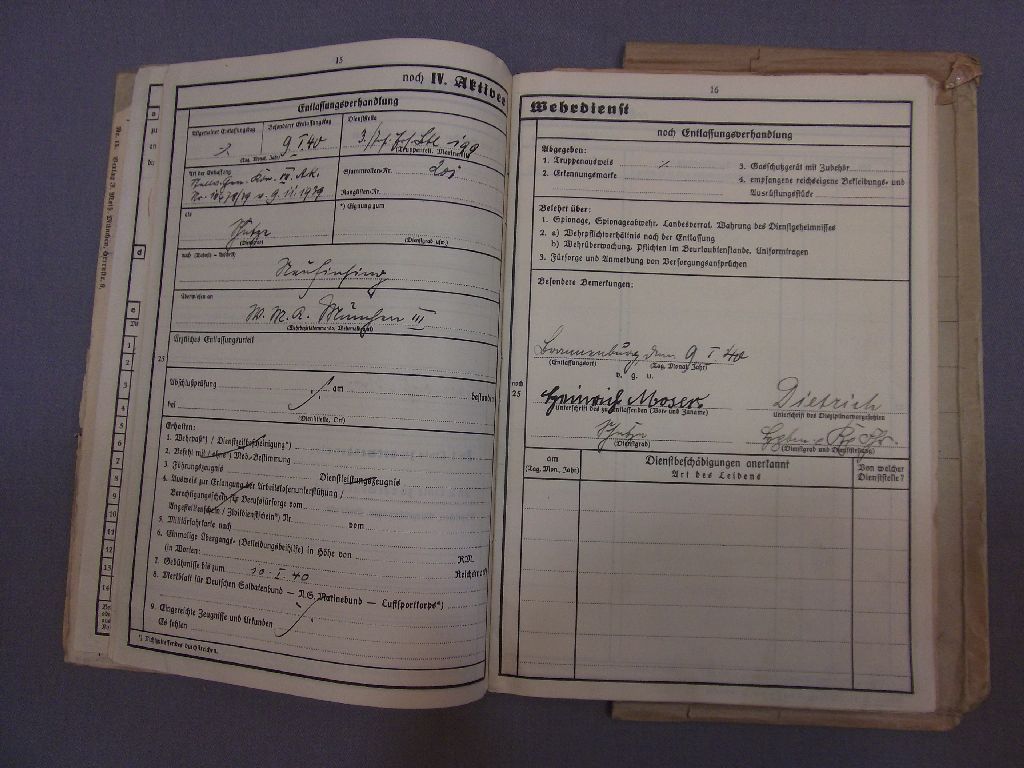 15
noch IV. Aktiver
Entlassungsverhandlung
Allgemeiner Entlassungstag
Besonderer Entlassungstag
Dienststelle
9. I. 40
(Tag, Monat, Jahr)
(Truppenteil, Marineteil)
Art der Entlassung
Stammrollen-Nr. 201
Nr. v. 9. 11. 1939
Ranglisten-Nr.
als
*) Eignung zum
Schütze
(Dienstgrad)
(Dienstgrad usw.)
nach (Wohnort — Wohnung)
Neufinsing
Überwiesen an
W. M. A. München III
(Wehrbezirkskommando, Wehrmeldeamt)
Ärztliches Entlassungsurteil
23
Abschlußprüfung am bestanden
bei
(Dienststelle, Ort)
Erhalten:
1. Wehrpaß*) / Dienstzeitbescheinigung*)
2. Befehl mit / ohne*) Mob.-Bestimmung
3. Führungszeugnis Dienstleistungszeugnis
4. Ausweis zur Erlangung der Arbeitslosenunterstützung /
Berechtigungsschein für Berufsfürsorge vom
Angestelltenschein / Zivildienstschein*) Nr. vom
5. Militärfahrkarte nach
6. Einmalige Übergangs- (Bekleidungsbeihilfe) in Höhe von RM.
(in Worten: Reichsmark
7. Gebührnisse bis zum 10. I. 40
8. Merkblatt für Deutschen Soldatenbund — N.S. Marinebund — Luftsportkorps*)
9. Eingereichte Zeugnisse und Urkunden
Es fehlen
*) Nichtzutreffendes durchstreichen.
16
Wehrdienst
noch Entlassungsverhandlung
Abgegeben:
1. Truppenausweis
3. Gasschutzgerät mit Zubehör
2. Erkennungsmarke
4. empfangene reichseigene Bekleidungs- und
Ausrüstungsstücke
Belehrt über:
1. Spionage, Spionageabwehr, Landesverrat, Wahrung des Dienstgeheimnisses
2. a) Wehrpflichtverhältnis nach der Entlassung
b) Wehrüberwachung, Pflichten im Beurlaubtenstande, Uniformtragen
3. Fürsorge und Anmeldung von Versorgungsansprüchen
Besondere Bemerkungen:
Brannenburg, den 9. I. 40
(Entlassungsort) (Tag, Monat, Jahr)
v. g. u.
noch
25
Heinrich Moser
Dietrich
Unterschrift des zu Entlassenden (Vor- und Zuname)
Unterschrift des Disziplinarvorgesetzten
Schütze
(Dienstgrad)
(Dienstgrad und Dienststellung)
am
(Tag, Mon., Jahr)
Dienstbeschädigungen anerkannt
Art des Leidens
Von welcher
Dienststelle?